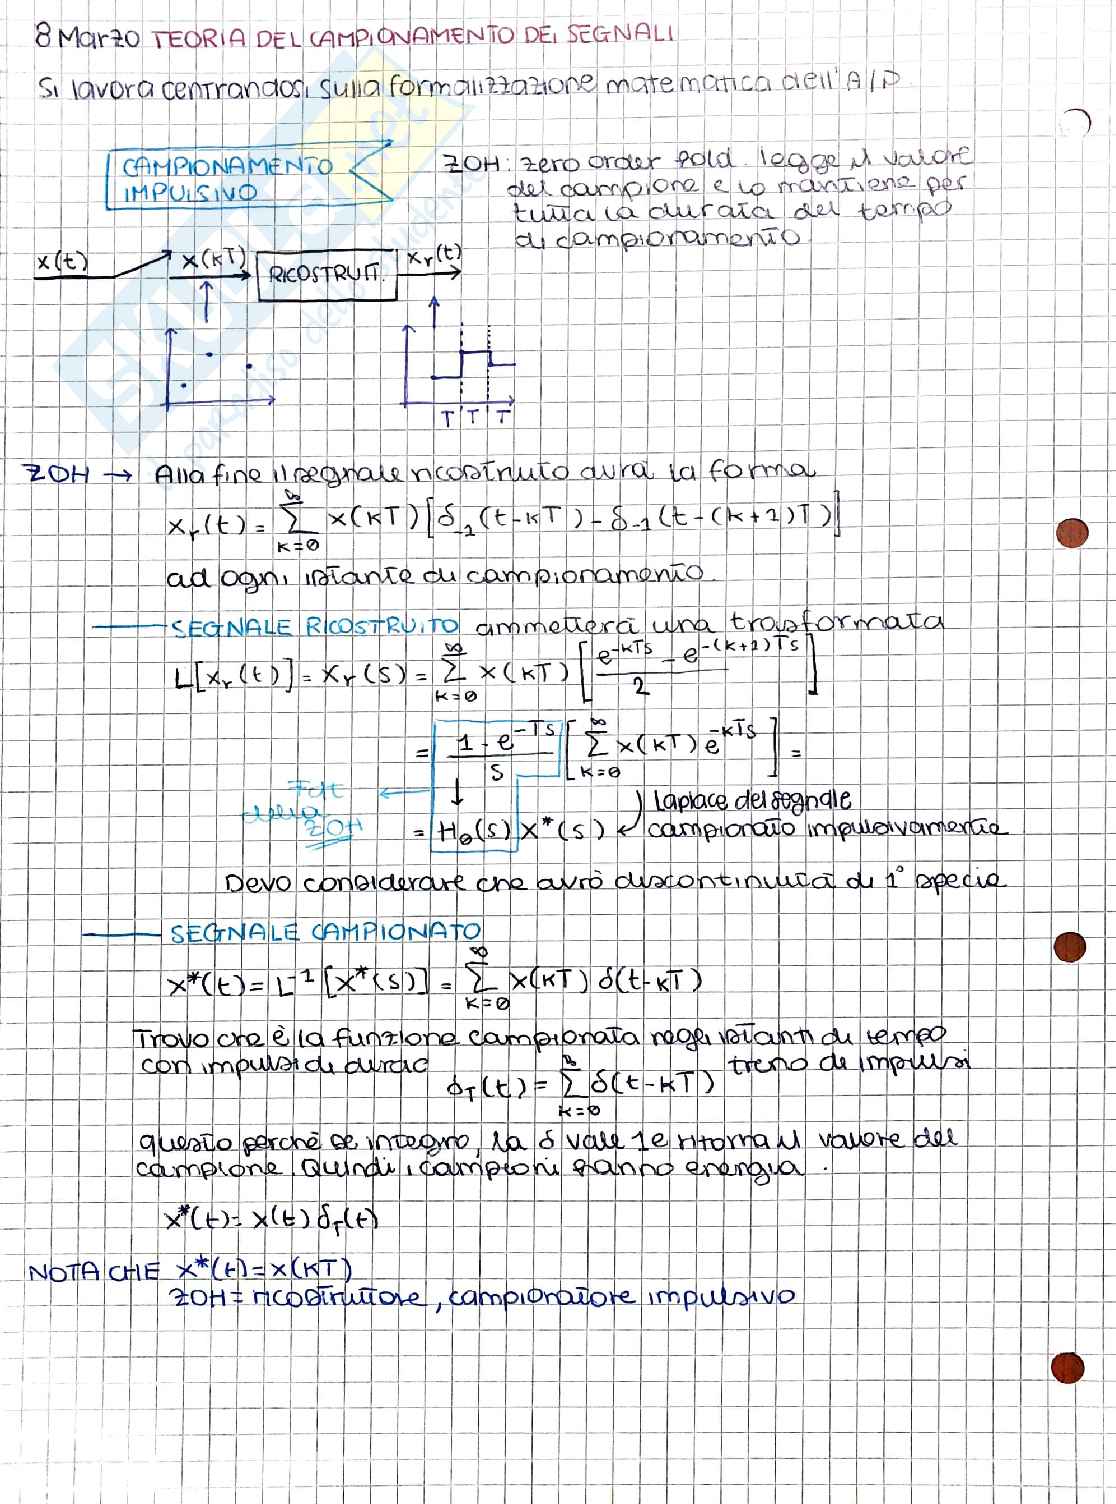 8 Marzo TEORIA DEL CAMPIONAMENTO DEI SEGNALI
Si lavora centrandosi sulla formalizzazione matematica dell'A/D
CAMPIONAMENTO
IMPULSIVO
ZOH: zero order hold. legge il valore
del campione e lo mantiene per
tutta la durata del tempo
di campionamento
x(t) x(kT) RICOSTRUIT. xr(t)
T T T
ZOH → Alla fine il segnale ricostruito avrà la forma
xr(t) = ∑_{k=0}^{∞} x(kT) [δ₋₁(t-kT) - δ₋₁(t-(k+1)T)]
ad ogni istante di campionamento
SEGNALE RICOSTRUITO ammetterà una trasformata
L[xr(t)] = Xr(s) = ∑_{k=0}^{∞} x(kT) [(e^{-kTs} - e^{-(k+1)Ts})/2]
= (1 - e^{-Ts})/s [∑_{k=0}^{∞} x(kT) e^{-kTs}] =
Fdt
dello
ZOH
= H₀(s) X*(s) ← Laplace del segnale
campionato impulsivamente
Devo considerare che avrò discontinuità di 1° specie
SEGNALE CAMPIONATO
x*(t) = L⁻¹[X*(s)] = ∑_{k=0}^{∞} x(kT) δ(t-kT)
Trovo che è la funzione campionata negli istanti di tempo
con impulsi di dirac
δT(t) = ∑_{k=0}^{∞} δ(t-kT) treno di impulsi
questo perché se integro, la δ vale 1 e ritorna il valore del
campione. Quindi i campioni hanno energia.
x*(t) = x(t) δT(t)
NOTA CHE x*(t) = x(kT)
ZOH = ricostruttore, campionatore impulsivo